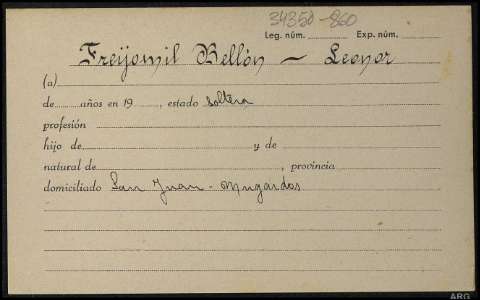 34350-860
Leg. núm. Exp. núm.
Freijomil Bellón - Leonor
(a)
de años en 19 , estado soltera
profesión
hijo de y de
natural de , provincia
domiciliado San Juan - Mugardos
ARG